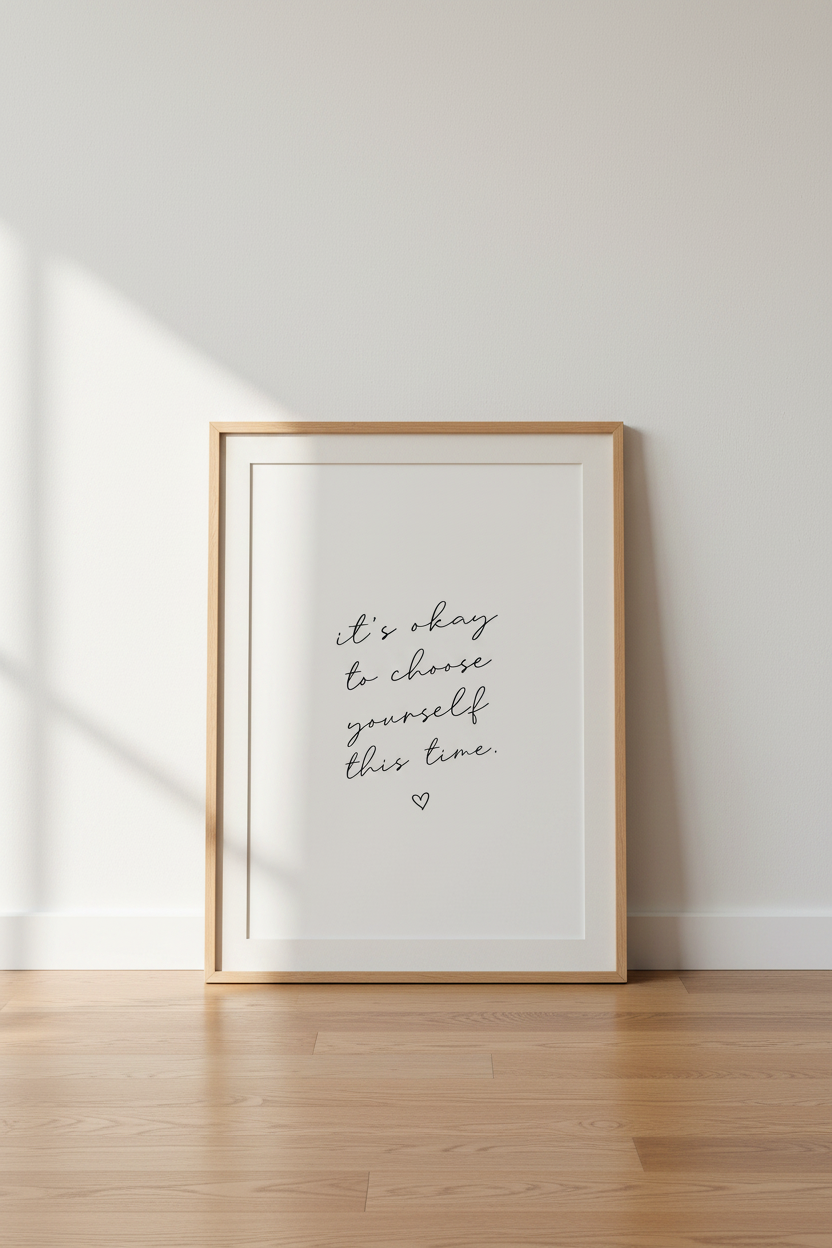 it's okay
to choose
yourself
this time.